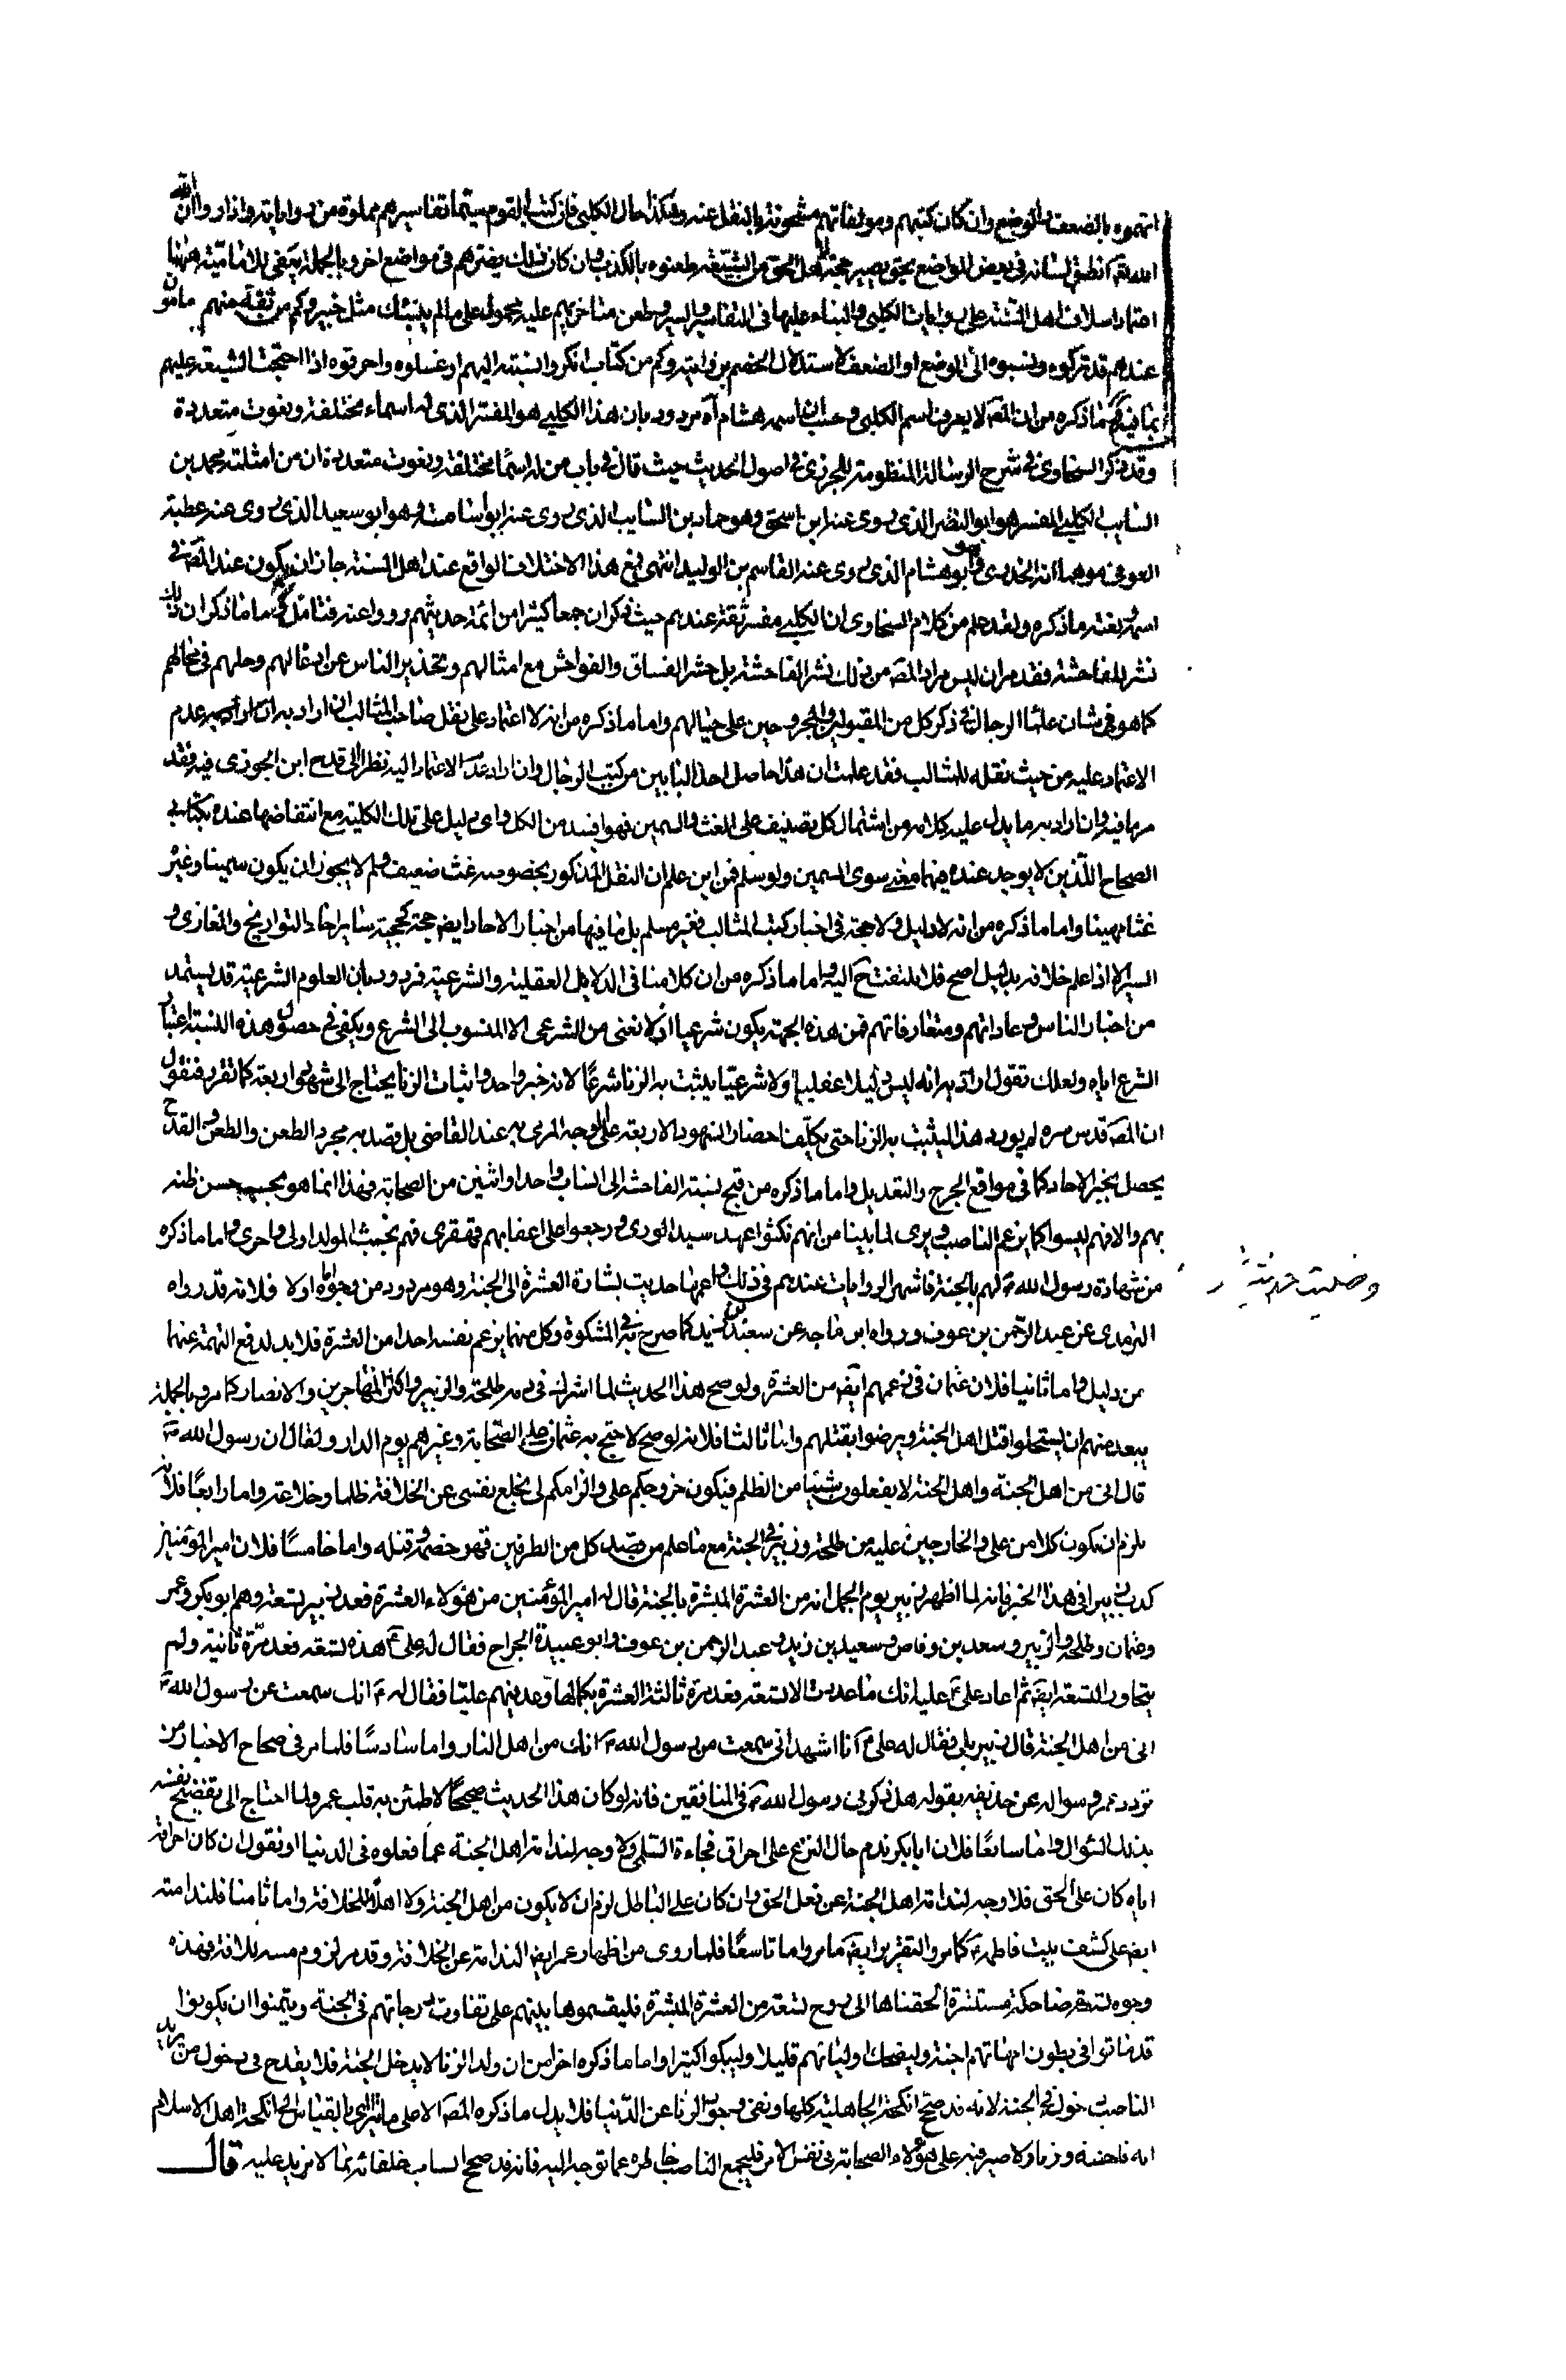 اتهموه بالضعف والوضع وان كان كتبهم ومولفاتهم مشحونة بالنقل عنه وهكذا حال الكلبي فان كتب القوم سيما تفاسيرهم مملوة من رواياته واذا راوا ان الله
الله تعالى انطق لسانه في بعض المواضع بحق يصير حجة لاهل الحق من الشيعة طعنوه بالكذب وان كان ذلك يضرهم في مواضع اخر وبالجملة يكفي للامامية ههنا
اعتماد اسلاف اهل السنة على روايات الكلبي والبناء عليها في التفاسير والسير وطعن متاخريهم عليه محمول على مالم ينبئك مثل خبير وكم من ثقة منهم مامون
عندهم قد تركوه ونسبوه الى الوضع او الضعف لاستدلال الخصم بروايته وكم من كتاب انكروا نسبته اليهم او غسلوه واحرقوه اذا احتجت الشيعة عليهم
بما فيه وما ذكره من ان المص لا يعرف اسم الكلبي وحسب ان اسمه هشام آه مردود بان هذا الكلبي هو المفسر الذي له اسماء مختلفة ونعوت متعددة
وقد ذكر السخاوي في شرح الرسالة المنظومة للجزري في اصول الحديث حيث قال في باب من له اسماء مختلفة ونعوت متعددة ان من امثلته محمد بن
السايب الكلبي المفسر هو ابو النضر الذي روى عنه ابن اسحق وهو حماد بن السايب الذي روى عنه ابو اسامة وهو ابو سعيد الذي روى عنه عطية
العوفي موهما انه الخدري وهو ابو هشام الذي روى عنه القاسم بن الوليد انتهى فمع هذا الاختلاف الواقع عند اهل السنة جاز ان يكون عند المص في
اسمه ونعته ما ذكره ولقد علم من كلام السخاوي ان الكلبي مفسر ثقة عندهم حيث ذكر ان جمعا كثيرا من ائمة حديثهم رووا عنه فتامل واما ما ذكر ان ذلك
نشر للفاحشة فقد مر ان ليس مراد المص من ذلك نشر الفاحشة بل حشر الفساق والفواحش مع امثالهم وتحذير الناس عن ادغالهم وحلهم في محالهم
كما هو في شان علماء الرجال في ذكر كل من المقبولين والمجروحين على حيالهم واما ما ذكره من انه لا اعتماد على نقل صاحب المثالب ان اراد به ان كل احد عدم
الاعتماد عليه من حيث نقله للمثالب فقد علمت ان هذا حاصل احد البابين من كتب الرجال وان اراد عدم الاعتماد اليه نظرا الى قدح ابن الجوزي فيه فقد
مر ما فيه وان اراد به ما يدل عليه كلامه من اشتمال كل تصنيف على الغث والسمين فهو افسد من الكل واي دليل على تلك الكلية مع انتقاضها عنده بكتابي
الصحاح اللذين لا يوجد عنده فيهما شيء سوى السمين ولو سلم فمن اين علم ان النقل المذكور بخصوصه غث ضعيف ولم لا يجوز ان يكون سمينا وغيره
غثا مهينا واما ما ذكره من انه لا دليل ولا حجة في اخبار كتب المثالب فغير مسلم بل ما فيها من اخبار الاحاد ايض حجة كحجية ساير احاد التواريخ والمغازي و
السير الا اذا علم خلافه بدليل اصح فلا يلتفت ح اليه واما ما ذكره من ان كلامنا في الدلايل العقلية والشرعية فمردود بان العلوم الشرعية قد يستمد
من اخبار الناس وعاداتهم ومتعارفاتهم فمن هذه الجهة يكون شرعيا اذ لا نعني من الشرعي الا المنسوب الى الشرع ويكفي في حصول هذه النسبة اعتبار
الشرع اياه ولعلك تقول اراد به انه ليس دليلا عقليا ولا شرعيا يثبت به الزنا شرعا لانه خبر واحد واثبات الزنا يحتاج الى شهود اربعة كما تقرر فنقول
ان المص قدس سره لم يورد هذا ليثبت به الزنا حتى يكلفنا احضار الشهود الاربعة على الوجه المرعي به عند القاضي بل قصد به مجرد الطعن والطعن والقدح
يحصل بخبر الاحاد كما في مواقع الجرح والتعديل واما ما ذكره من قبح نسبة الفاحشة الى انساب واحد او اثنين من الصحابة فهذا انما هو بحسب حسن ظنه
بهم والا فهم ليسوا كما يزعم الناصب ويرى لما بينا من انهم نكثوا عهد سيد الورى ورجعوا على اعقابهم قهقرى فهم بخبث المولد اولى واحرى واما ما ذكره
من شهادة رسول الله ص لهم بالجنة فاشهر الروايات عندهم في ذلك واعمها حديث بشارة العشرة الى الجنة وهو مردود من وجوه اما اولا فلانه قد رواه
وضعيت حديث
الترمذي عن عبد الرحمن بن عوف ورواه ابن ماجه عن سعيد بن زيد كما صرح به في المشكوة وكل منهما يزعم نفسه احدا من العشرة فلا بد لدفع التهمة عنهما
من دليل واما ثانيا فلان عثمان في زعمهم ايض من العشرة ولو صح هذا الحديث لما اشرك في دمه طلحة والزبير واكثر المهاجرين والانصار كما مر وبالجملة
يبعد منهم ان يستحلوا قتل اهل الجنة ويرضوا بقتلهم واما ثالثا فلانه لو صح لاحتج به عثمان على الصحابة وغيرهم يوم الدار ولقال ان رسول الله ص
قال اني من اهل الجنة واهل الجنة لا يفعلون شيئا من الظلم فيكون خروجكم علي والزامكم لي بخلع نفسي عن الخلافة ظلما وخلاعة واما رابعا فلانه
يلزم ان يكون كلا من علي والخارجين عليه من طلحة وزبير في الجنة مع ما علم من قصد كل من الطرفين قهر خصمه وقتله واما خامسا فلان امير المؤمنين
كذب زبيرا في هذا الخبر فانه لما اظهر زبير يوم الجمل انه من العشرة المبشرة بالجنة قال له امير المؤمنين من هؤلاء العشرة فعد زبير تسعة وهم ابو بكر وعمر
وعثمان وطلحة والزبير وسعد بن وقاص وسعيد بن زيد وعبد الرحمن بن عوف وابو عبيدة الجراح فقال له علي ع هذه تسعة فعد مرة ثانية ولم
يتجاوز التسعة ايض ثم اعاد علي ع عليه انك ما عددت الا تسعة فعد مرة ثالثة العشرة بكمالها وعد فيهم عليا فقال له ع انك سمعت عن رسول الله ص
اني من اهل الجنة قال زبير بلى فقال له علي ع انا اشهد اني سمعت من رسول الله ص انك من اهل النار واما سادسا فلما مر في صحاح الاخبار من
تردد عمر وسواله عن حذيفه بقوله هل ذكرني رسول الله ص في المنافقين فانه لو كان هذا الحديث صحيحا لاطمئن به قلب عمر ولما احتاج الى تفضيح نفسه
بذلك السؤال واما سابعا فلان ابا بكر ندم حال النزع على احراق فجاءة السلمي ولا وجه لندامة اهل الجنة عما فعلوه في الدنيا او نقول ان كان احراقه
اياه كان على الحق فلا وجه لندامة اهل الجنة عن فعل الحق وان كان على الباطل لزم ان لا يكون من اهل الجنة ولا اهلا للخلافة واما ثامنا فلندامته
ايض على كشف بيت فاطمة ع كما مر والتقرير ايض ما مر واما تاسعا فلما روى من اظهار عمر ايض الندامة عن الخلافة وقد مر لزوم مسه للافة فهذه
وجوه تسعة ضاحكة مستبشرة الحقناها الى روح تسعة من العشرة المبشرة فليقسموها بينهم على تفاوت درجاتهم في الجنة ويتمنوا ان يكونوا
قد ماتوا في بطون امهاتهم اجنة وليضحك اوليائهم قليلا وليبكوا كثيرا واما ما ذكره اخرا من ان ولد الزنا لا يدخل الجنة فلا يقدح في دخول من يريد
الناصب دخوله في الجنة لانه قد صحح انكحة الجاهلية كلها ونفى وجود الزنا عن الدنيا فلا يدل ما ذكره المص الا على ما يترائى بالقياس الى انكحة اهل الاسلام
انه فاحشة وزنا ولا ضير فيه على هؤلاء الصحابة في نفس الامر فليجمع الناصب خاطره عما توجه اليه فانه قد صحح انساب خلفائه بما لا مزيد عليه قال